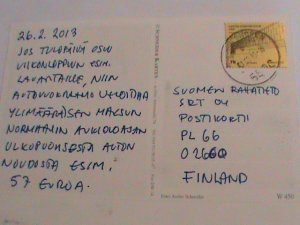 26.2.2013
JOS TULEPIVÄ OSUU
VIIKONLOPPUUN ESIM.
LAUANTAILLE, NIIN
AUTOVUOKRAAMO VELOITTAA
YLIMÄÄRÄISEN MAKSUN
NORMAALIN AUKIOLOAJAN
ULKOPUOLISESTA AUTON
NOUDOSTA ESIM.
57 EUROA.
SUOMEN RAHATIETO
SRT OY
POSTIKORTTI
PL 66
02600
FINLAND
W 450